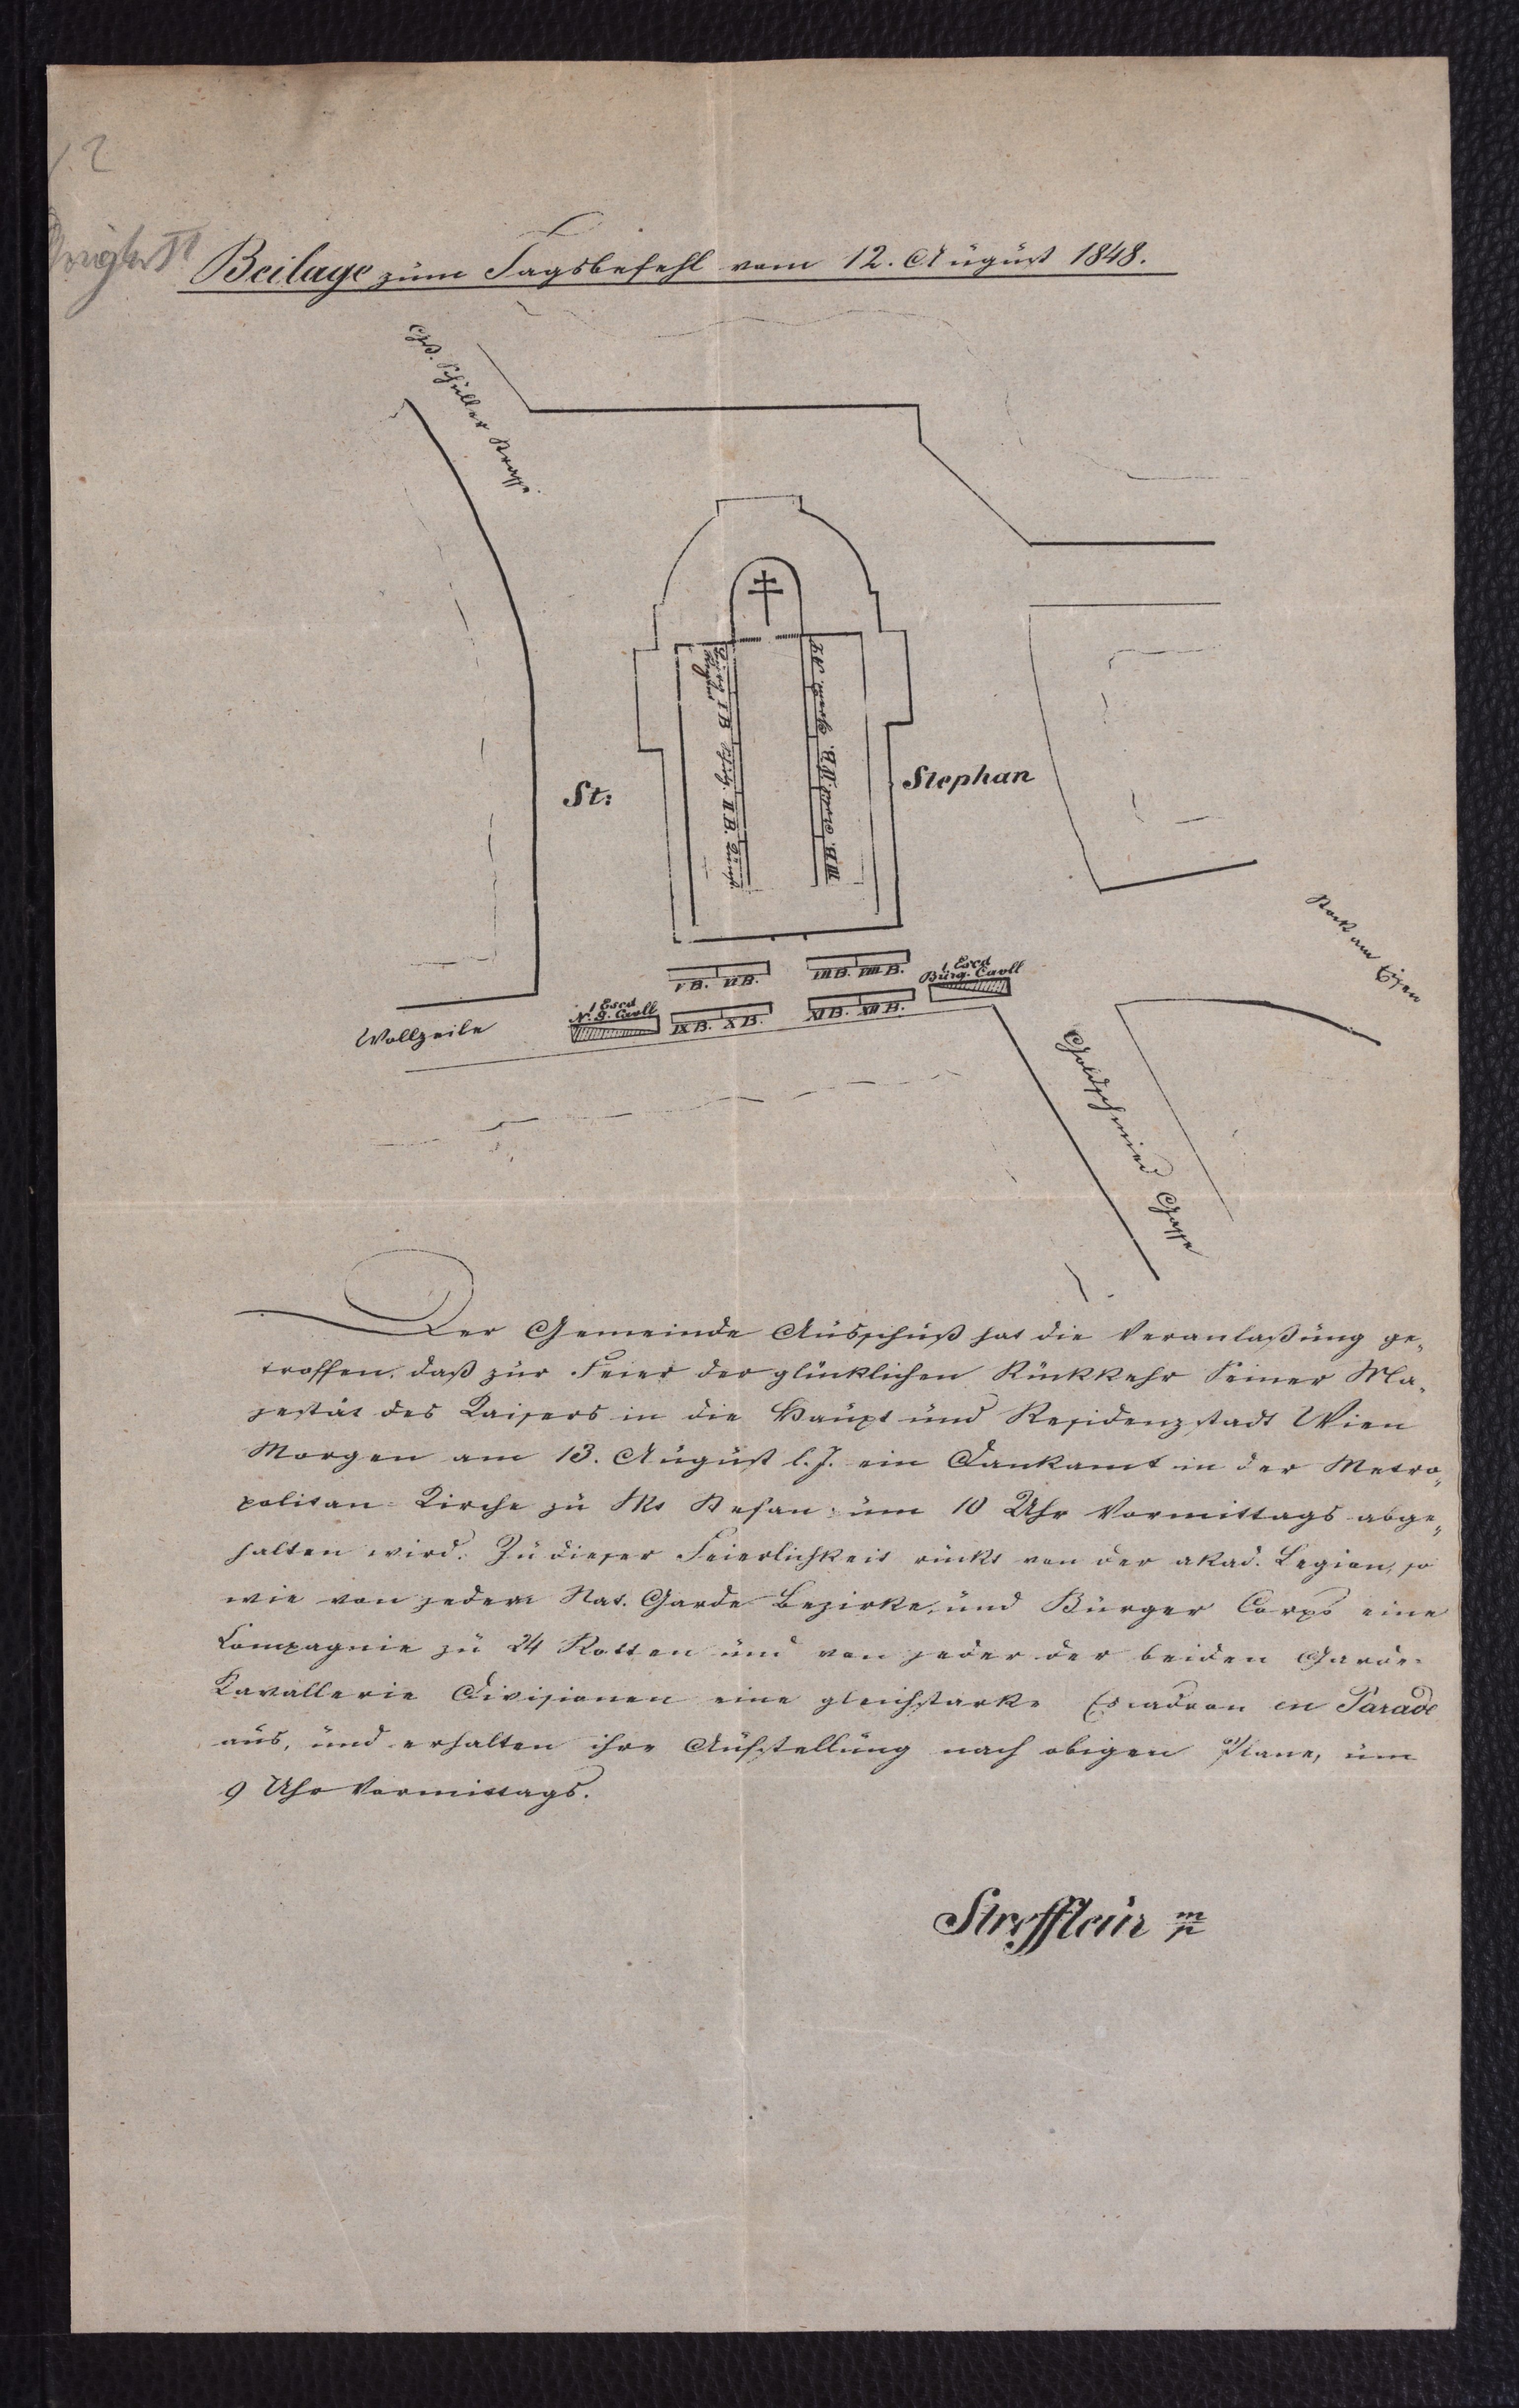 12
Beilage zum Tagsbefehl vom 12. August 1848.
Gß. Schuller Strasse.
St:
Stephan
I B
II B.
IV B.
III
Stock am Eisen
V B. VI B.
VII B. VIII B.
1 Escd
Bürg. Cavll
1 Escd
N. G. Cavll
IX B. X B.
XI B. XII B.
Wollzeile
Goldschmied Gasse
Der Gemeinde Ausschuß hat die Veranlaßung ge„
troffen, daß zur Feier der glücklichen Rückkehr Seiner Ma„
jestät des Kaisers in die Haupt und Residenzstadt Wien
Morgen am 13. August l. J. ein Dankamt in der Metro„
politan-Kirche zu Skt Stefan um 10 Uhr Vormittags abge„
halten wird. Zu dieser Feierlichkeit rückt von der akad. Legion, so
wie von jedem Nat. Garde Bezirke, und Bürger Corps eine
Compagnie zu 24 Rotten und von jeder der beiden Garde-
Kavallerie Divisionen eine gleichstarke Escadron en Parade
aus, und erhalten ihre Aufstellung nach obigen Plane, um
9 Uhr Vormittags.
Streffleür m/p